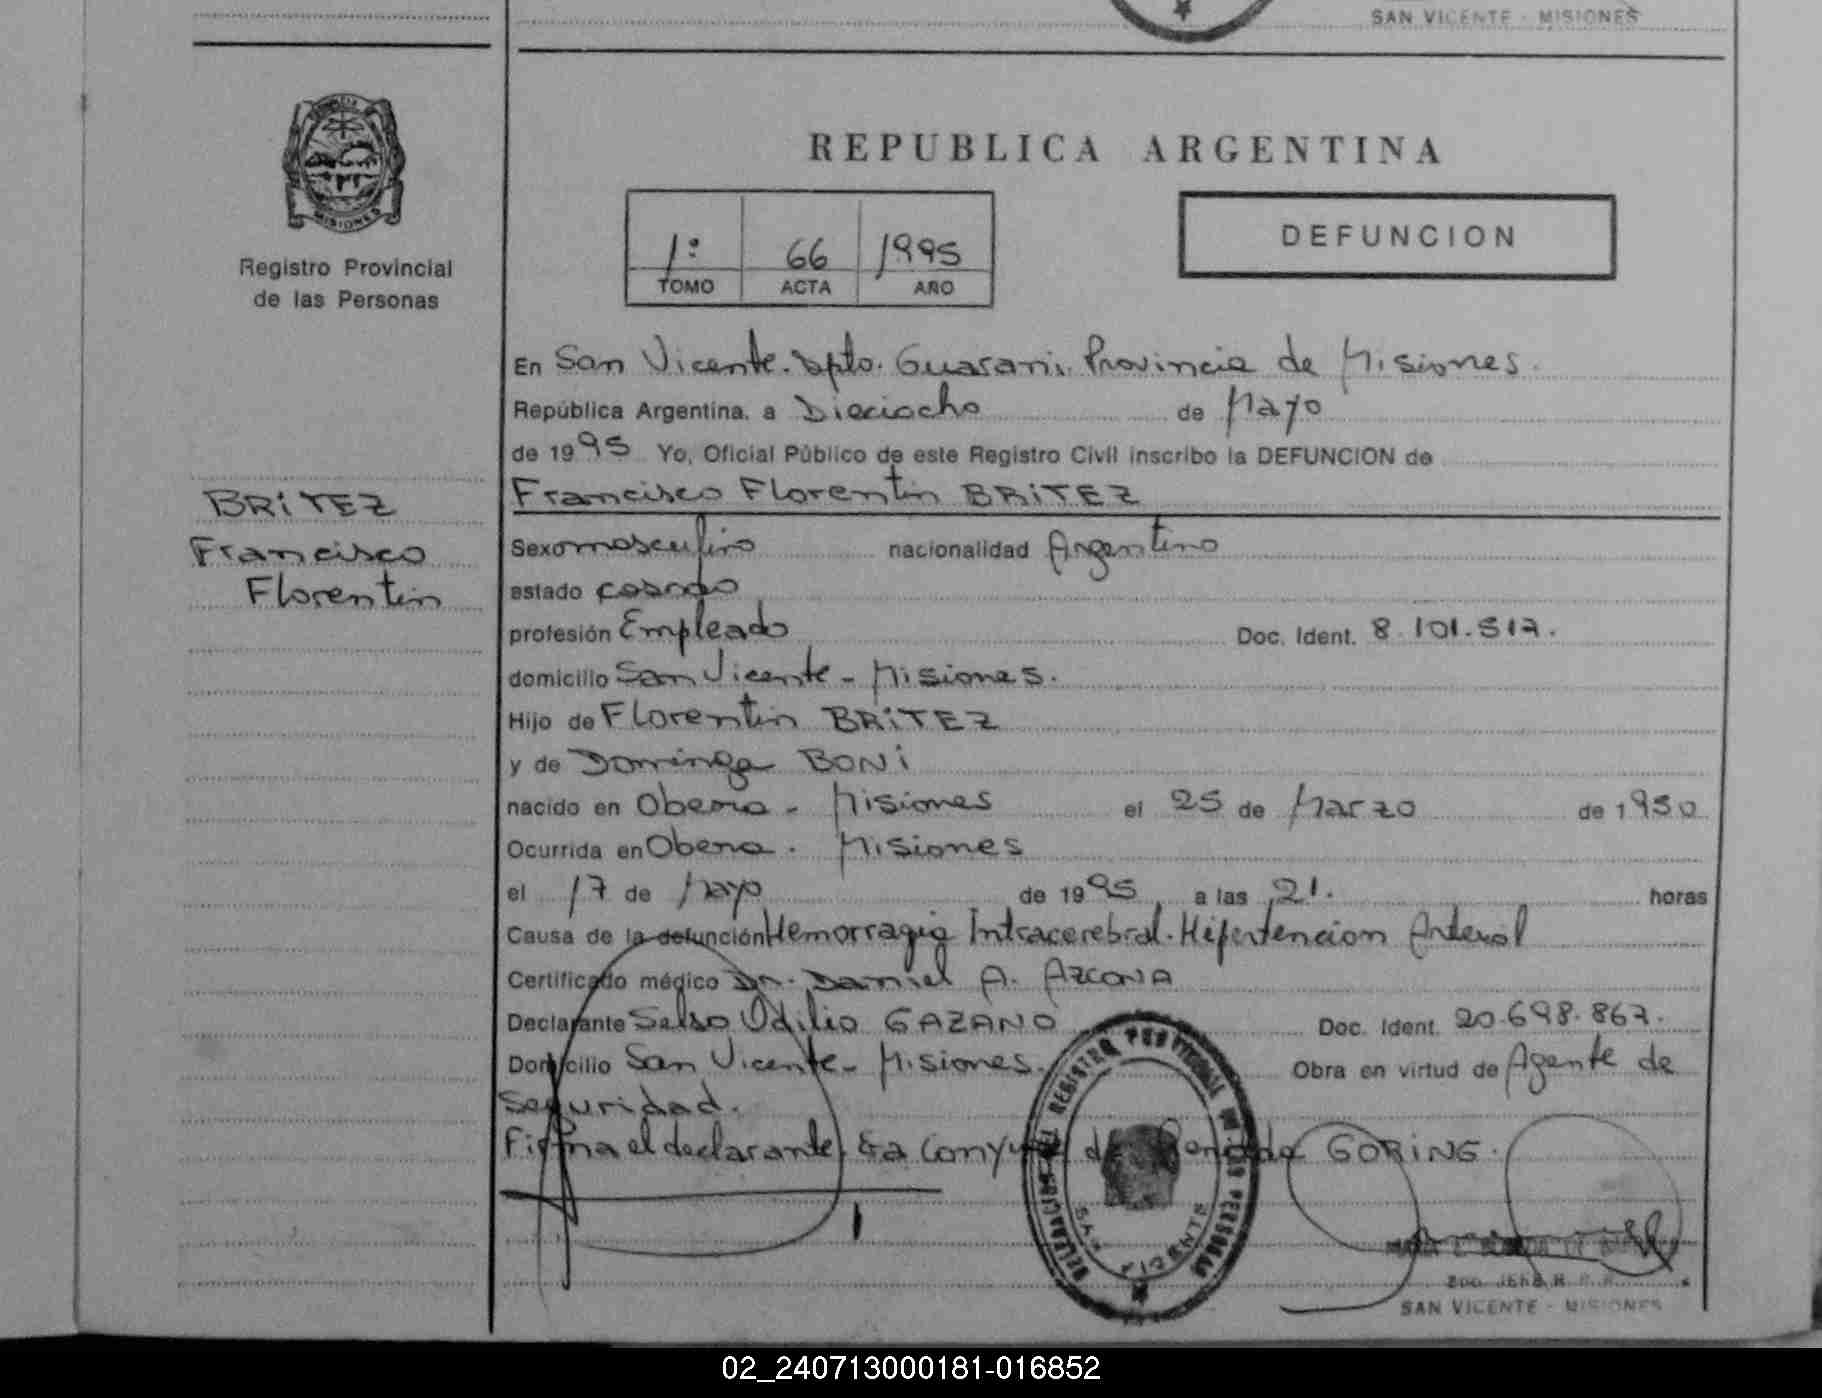 SAN VICENTE - MISIONES
PROVINCIA DE
MISIONES
Registro Provincial
de las Personas
REPUBLICA ARGENTINA
1º 66 1995
TOMO ACTA AÑO
DEFUNCION
En San Vicente. Dpto. Guarani. Provincia de Misiones.
República Argentina, a Dieciocho de Mayo
de 1995 Yo, Oficial Público de este Registro Civil inscribo la DEFUNCION de
Francisco Florentin BRITEZ
BRITEZ
Francisco
Florentin
Sexo masculino nacionalidad Argentino
estado casado
profesión Empleado Doc. Ident. 8.101.517.
domicilio San Vicente - Misiones.
Hijo de Florentin BRITEZ
y de Dominga BONI
nacido en Obera - Misiones el 25 de Marzo de 1950
Ocurrida en Obera. Misiones
el 17 de Mayo de 1995 a las 21. horas
Causa de la defunción Hemorragia Intracerebral. Hipertencion Arterial
Certificado médico Dr. Daniel A. AZCONA
Declarante Selso Odilio GAZANO Doc. Ident. 20.698.867.
Domicilio San Vicente - Misiones. Obra en virtud de Agente de
Seguridad.
Firma el declarante. La Conyuge de GORING.
DELEGACION DEL REGISTRO PROVINCIAL DE LAS PERSONAS
SAN VICENTE
SAN VICENTE - MISIONES
02_240713000181-016852